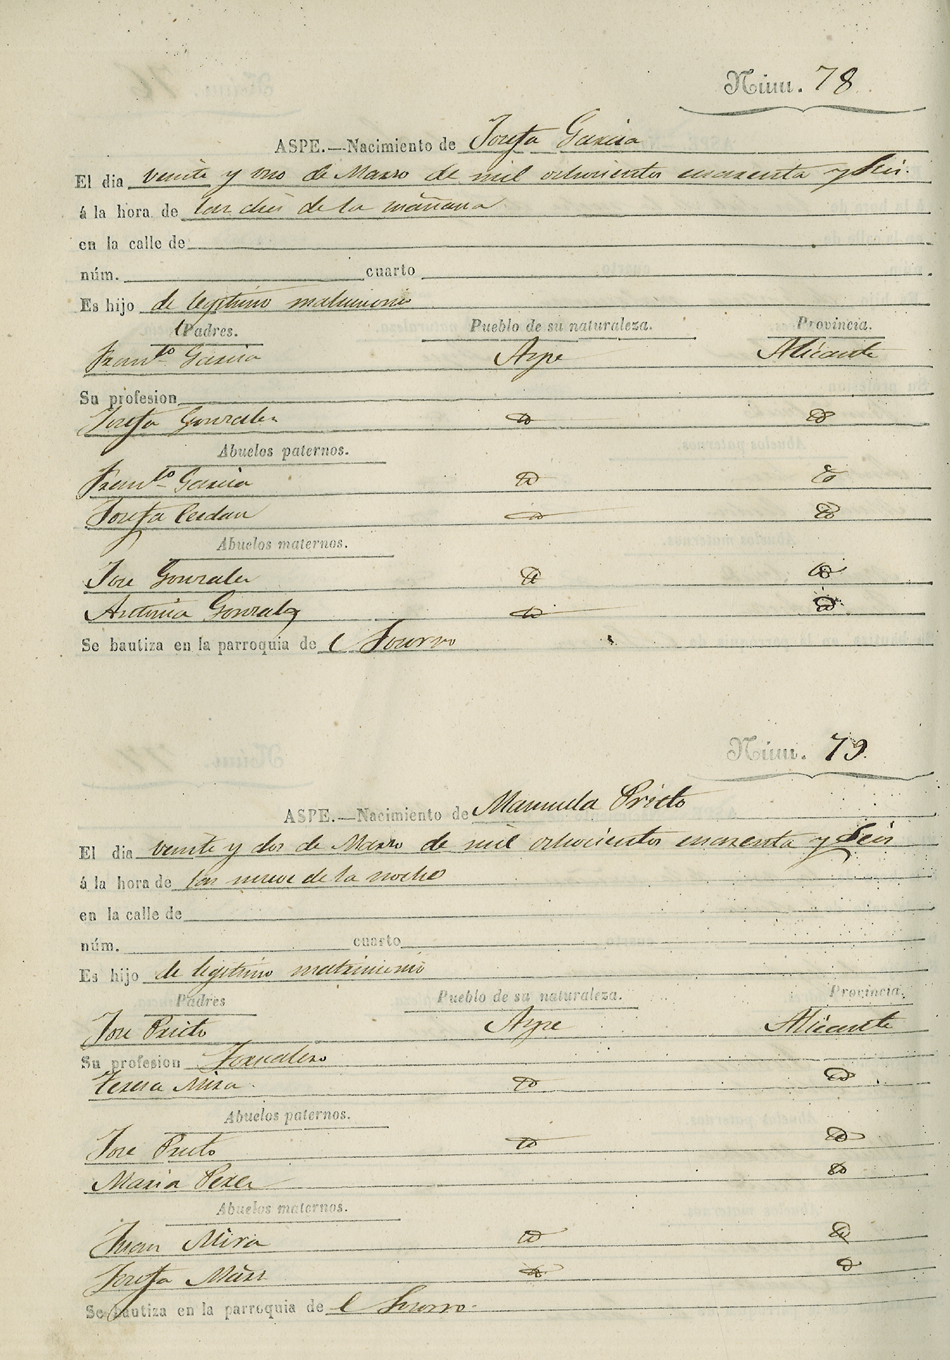 Núm. 78
ASPE.—Nacimiento de Josefa Garcia
El dia veinte y uno de Marzo de mil ochocientos cuarenta y Seis.
á la hora de las diés de la mañana
en la calle de
núm. cuarto
Es hijo de legitimo matrimonio
Padres. Pueblo de su naturaleza. Provincia.
Franco Garcia Aspe Alicante
Su profesion
Josefa Gonzalez id id
Abuelos paternos.
Franco Garcia id id
Josefa Cerdan id id
Abuelos maternos.
Jose Gonzalez id id
Antonia Gonzalez id id
Se bautiza en la parroquia de l Socorro
Núm. 79
ASPE.—Nacimiento de Manuela Prieto
El dia veinte y dos de Marzo de mil ochocientos cuarenta y Seis
á la hora de las nueve de la noche
en la calle de
núm. cuarto
Es hijo de legitimo matrimonio
Padres Pueblo de su naturaleza. Provincia.
Jose Prieto Aspe Alicante
Su profesion Jornalero
Teresa Mira id id
Abuelos paternos.
Jose Prieto id id
Maria Perez id
Abuelos maternos.
Juan Mira id id
Josefa id id
Se bautiza en la parroquia de l Socorro